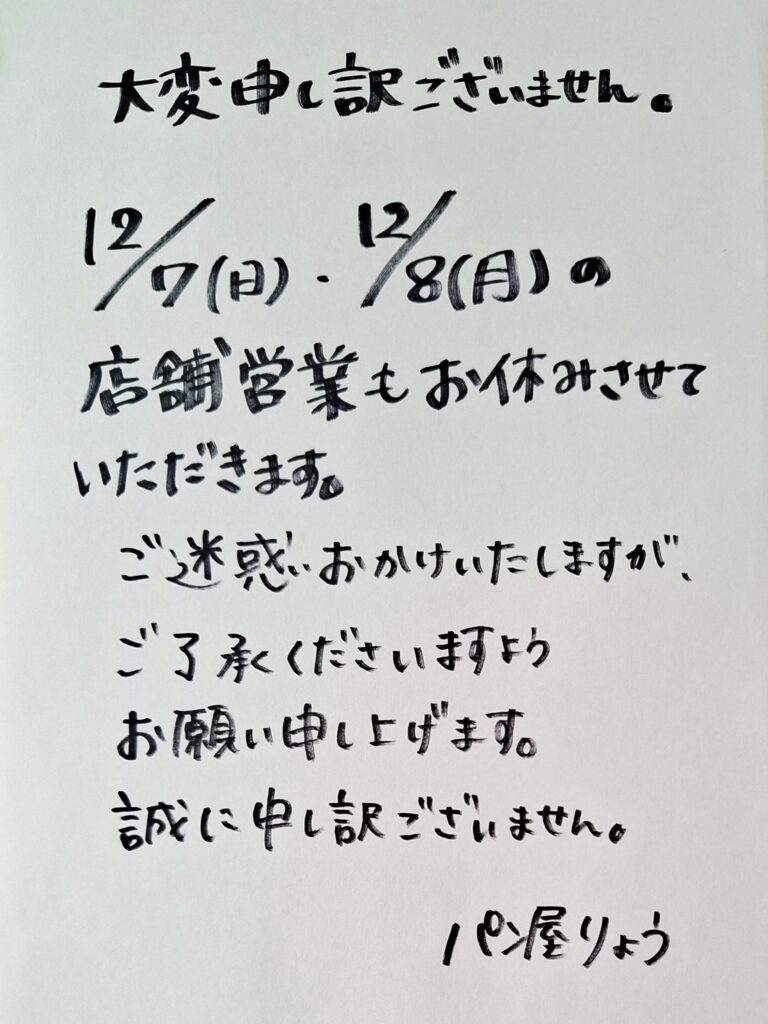 大変申し訳ございません。
12/7(日)・12/8(月)の
店舗営業もお休みさせて
いただきます。
ご迷惑おかけいたしますが、
ご了承くださいますよう
お願い申し上げます。
誠に申し訳ございません。
パン屋りょう